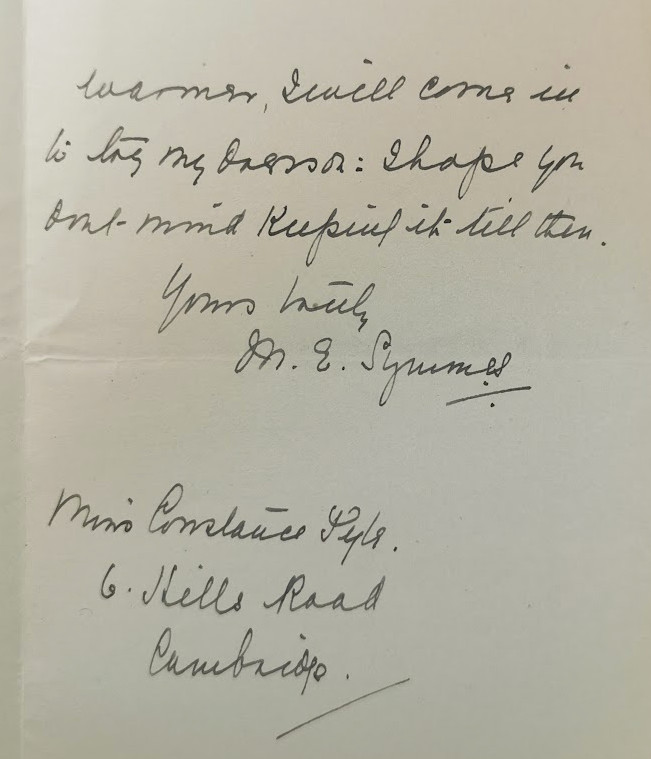 warmer, I will come in
to try my dress on: I hope you
dont mind Keeping it till then.
Yours truly
M. E. Symmes
Miss Constance
6. Hills Road
Cambridge.